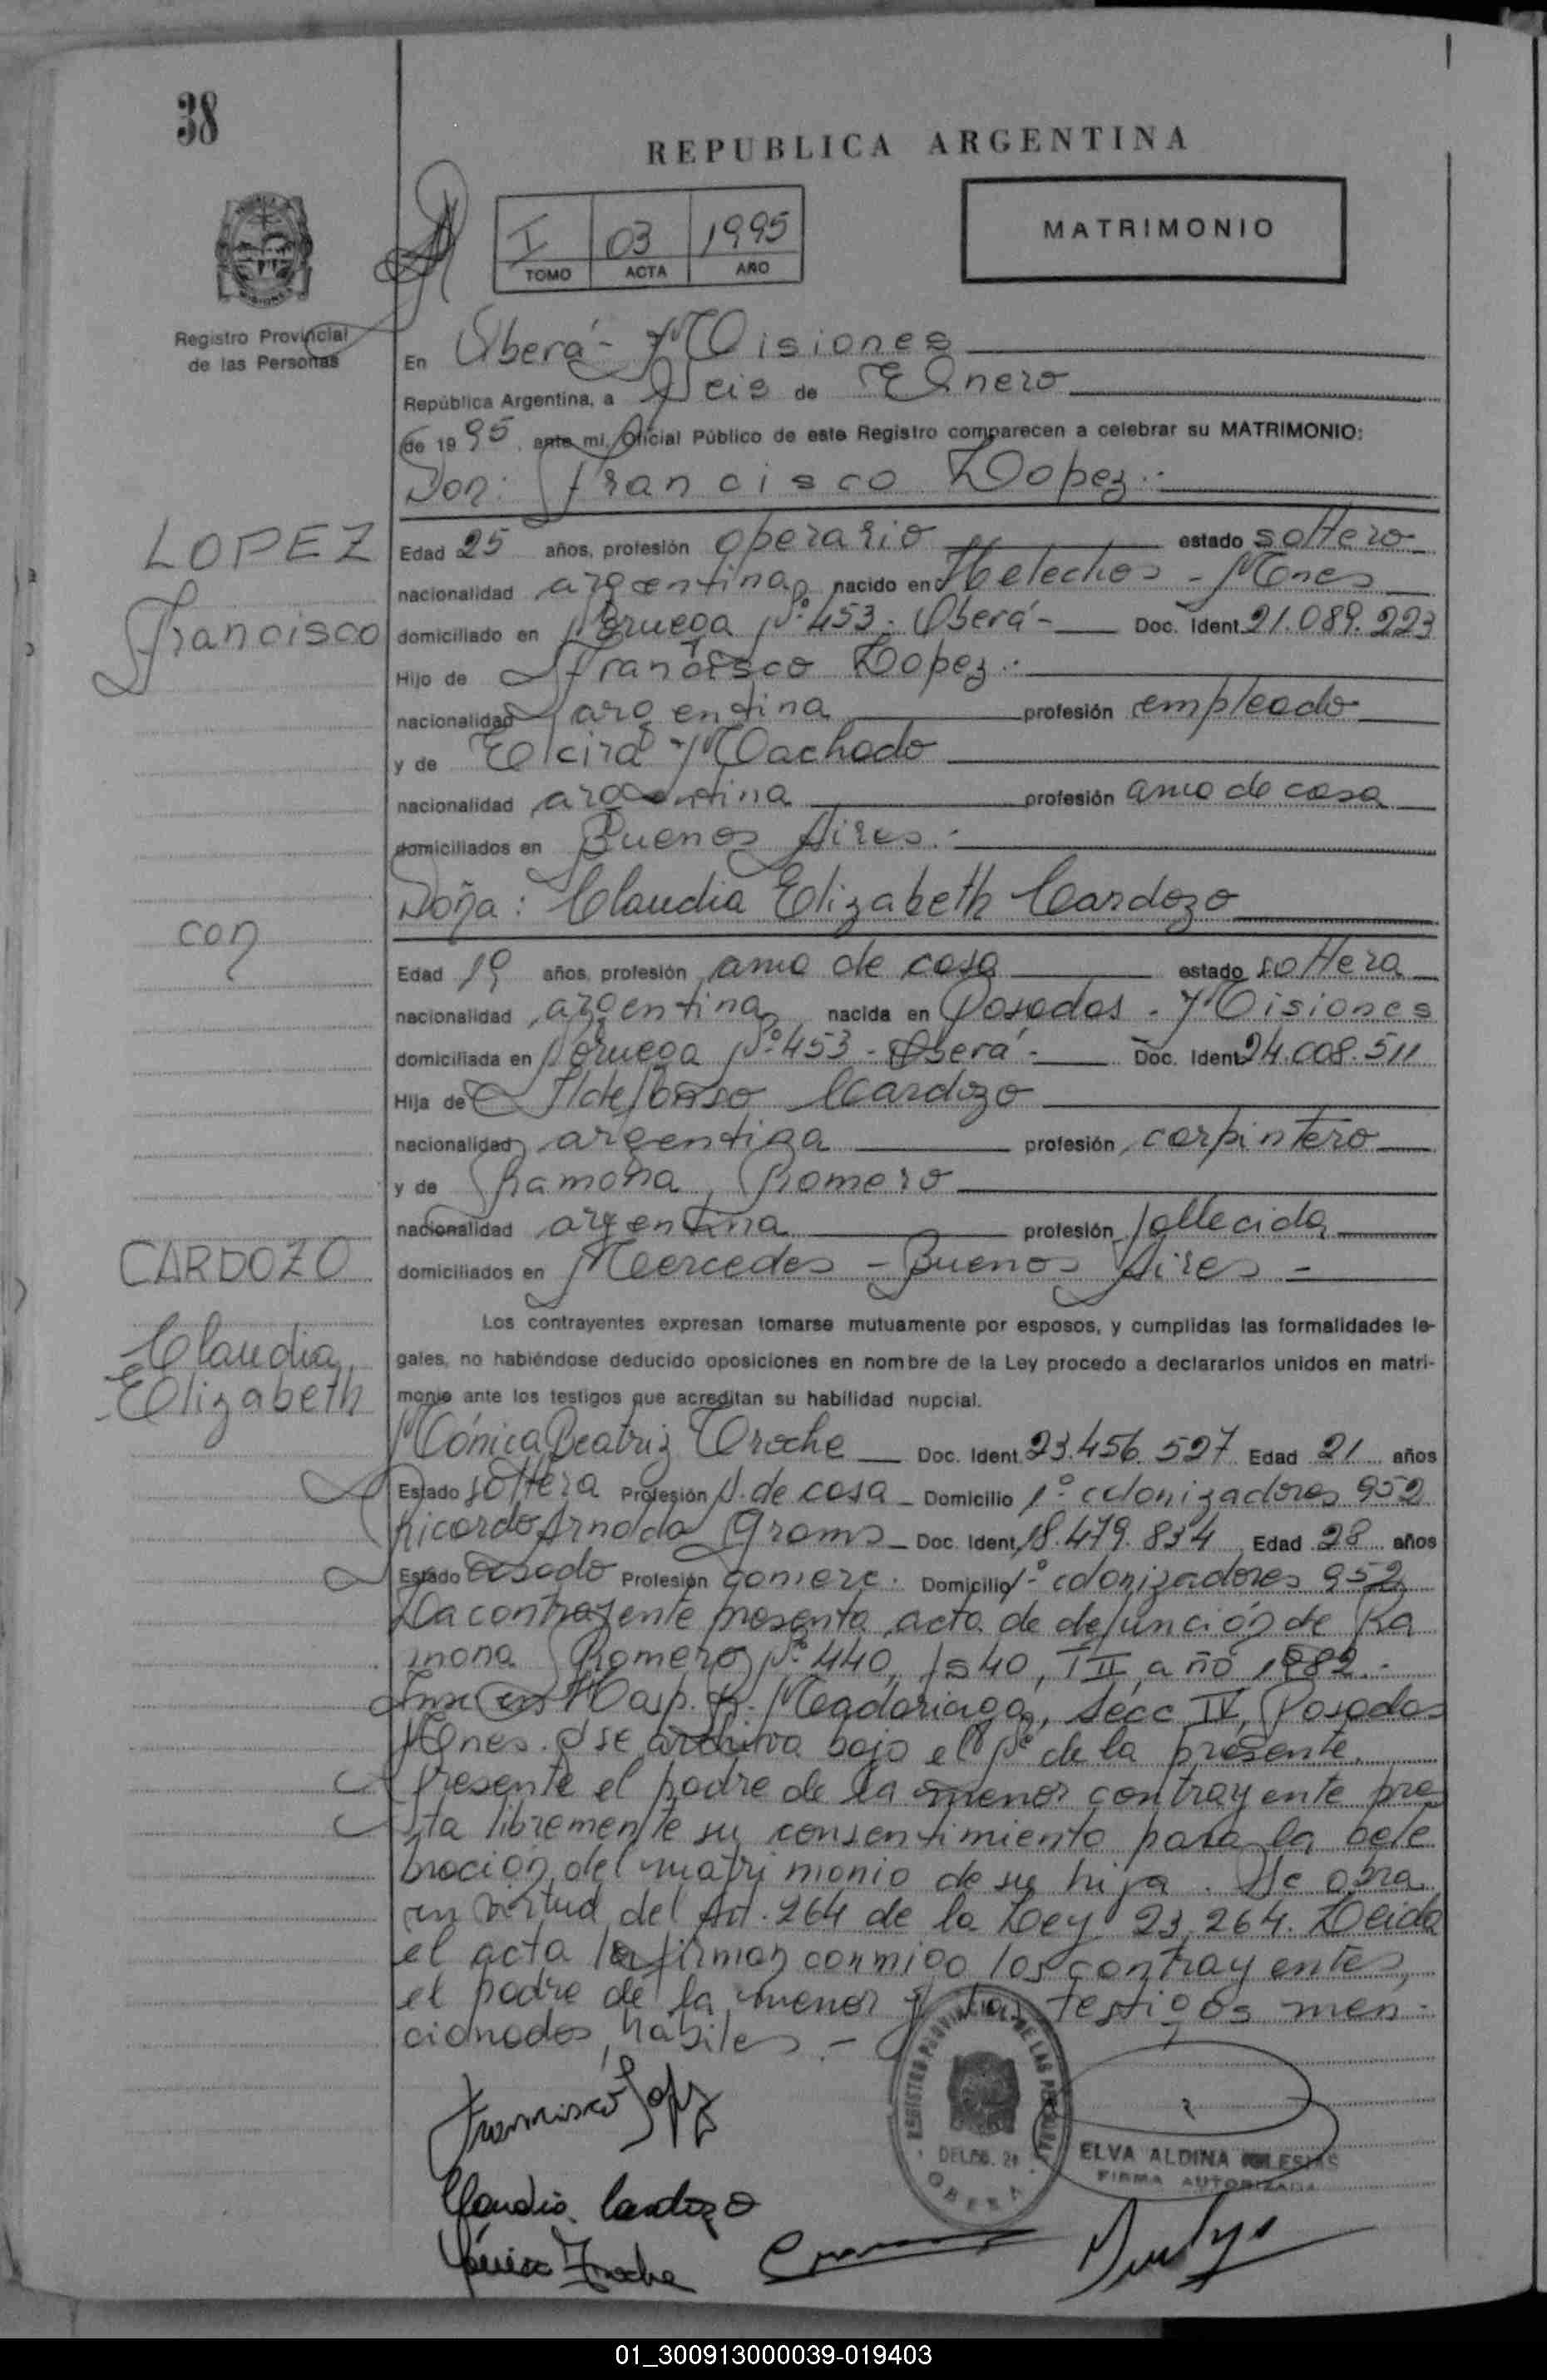 38
REPUBLICA ARGENTINA
MATRIMONIO
I 03 1995
TOMO ACTA AÑO
Registro Provincial
de las Personas
En Oberá - Misiones
República Argentina, a Seis de Enero
de 1995, ante mí, Oficial Público de este Registro comparecen a celebrar su MATRIMONIO:
Don: Francisco Lopez.-
LOPEZ
Francisco
Edad 25 años, profesión operario estado soltero
nacionalidad argentina nacido en Helechos - Mnes
domiciliado en Noruega Nº 453 - Oberá - Doc. Ident. 21.089.223
Hijo de Francisco Lopez.-
nacionalidad argentina profesión empleado
y de Elcira Machado
nacionalidad argentina profesión ama de casa
domiciliados en Buenos Aires.-
Doña: Claudia Elizabeth Cardozo
con
Edad 19 años, profesión ama de casa estado soltera
nacionalidad argentina nacida en Posadas - Misiones
domiciliada en Noruega Nº 453 - Oberá - Doc. Ident. 24.008.511
Hija de Ildefonso Cardozo
nacionalidad argentina profesión carpintero
y de Ramona Romero
nacionalidad argentina profesión fallecida
domiciliados en Mercedes - Buenos Aires -
CARDOZO
Claudia
Elizabeth
Los contrayentes expresan tomarse mutuamente por esposos, y cumplidas las formalidades le-
gales, no habiéndose deducido oposiciones en nombre de la Ley procedo a declararlos unidos en matri-
monio ante los testigos que acreditan su habilidad nupcial.
Mónica Beatriz Troche Doc. Ident. 23.456.527 Edad 21 años
Estado soltera Profesión A. de casa - Domicilio 1º colonizadores 952
Ricardo Arnoldo Groms - Doc. Ident. 18.479.834 Edad 28 años
Estado casado Profesión comerc. Domicilio 1º colonizadores 952
La contrayente presenta acta de defunción de Ra
mona Romero Nº 440, Fº 40, T II, año 1982.-
Hosp. R. Madariaga, Secc IV, Posadas
Mnes. y se archiva bajo el Nº de la presente.
Presente el padre de la menor contrayente pre
sta libremente su consentimiento para la cele
bración del matrimonio de su hija. Se obra
en virtud del Art. 264 de la Ley 23.264. Leida
el acta la firman conmigo los contrayentes,
el padre de la menor y los testigos men-
cionados hábiles.-
Francisco Lopez
REGISTRO PROVINCIAL DE LAS PERSONAS
OBERA
ELVA ALDINA IGLESIAS
FIRMA AUTORIZADA
Claudia Cardozo
Mónica Troche
01_300913000039-019403